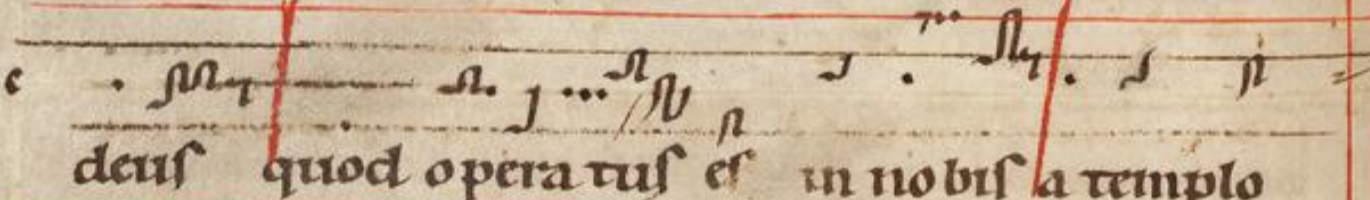 deuſ quod operatuſ eſ in nobiſ a templo